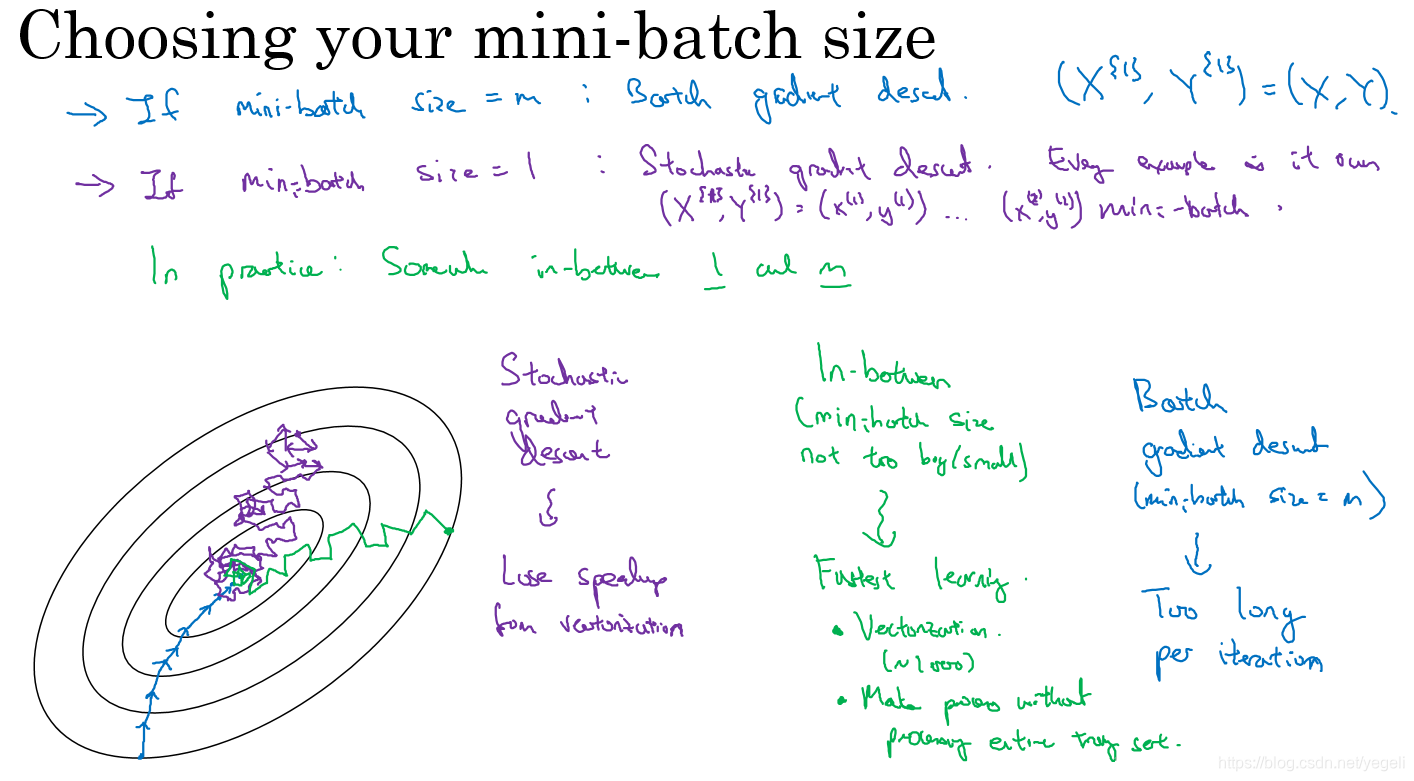 Choosing your mini-batch size
→ If mini-batch size = m : Batch gradient descent. (X^{1}, Y^{1}) = (X, Y).
→ If mini-batch size = 1 : Stochastic gradient descent. Every example is it own
(X^{1}, Y^{1}) = (x^(1), y^(1)) ... (x^(2), y^(2)) mini-batch.
In practice: Somewhere in-between 1 and m
Stochastic
gradient
descent
Lose speedup
from vectorization
In-between
(mini-batch size
not too big/small)
Fastest learning.
• Vectorization.
(~1000)
• Make progress without
processing entire training set.
Batch
gradient descent
(mini-batch size = m)
Too long
per iteration
https://blog.csdn.net/yegeli